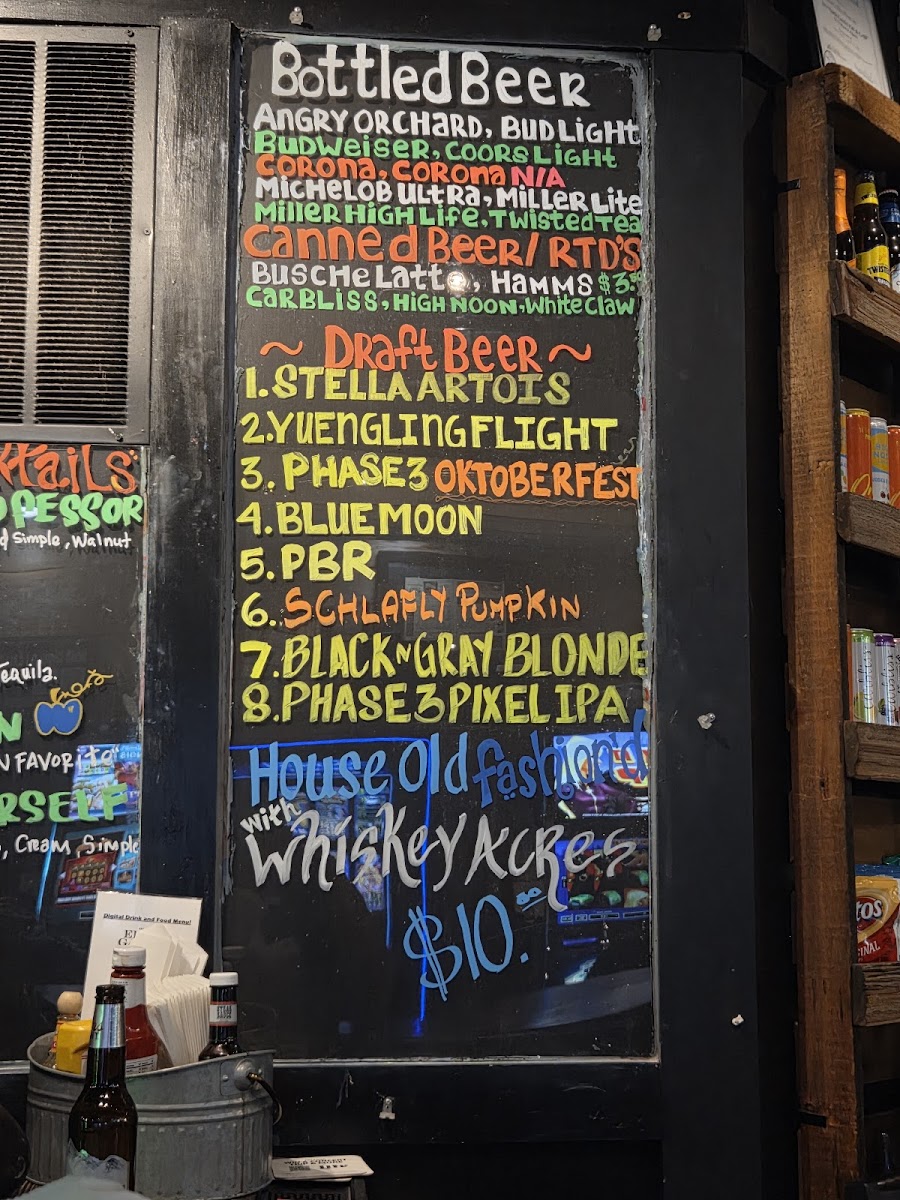 Bottled Beer
Angry Orchard, Bud Light
Budweiser, Coors Light
Corona, Corona N/A
Michelob Ultra, Miller Lite
Miller High Life, Twisted Tea
Canned Beer/ RTD'S
Busche Latte, Hamms $3.50
Carbliss, High Noon, White Claw
~ Draft Beer ~
1. STELLA ARTOIS
2. YUENGLING FLIGHT
3. PHASE 3 OKTOBERFEST
4. BLUE MOON
5. PBR
6. SCHLAFLY PUMPKIN
7. BLACK N GRAY BLONDE
8. PHASE 3 PIXEL IPA
House Old fashion'd
with
Whiskey Acres
$10.00
ktails
OFESSOR
d Simple, Walnut
Tequila.
N
N FAVORITE"
RSELF
, Cream, Simple
Digital Drink and Food Menu!
TWIST
TOS
INAL